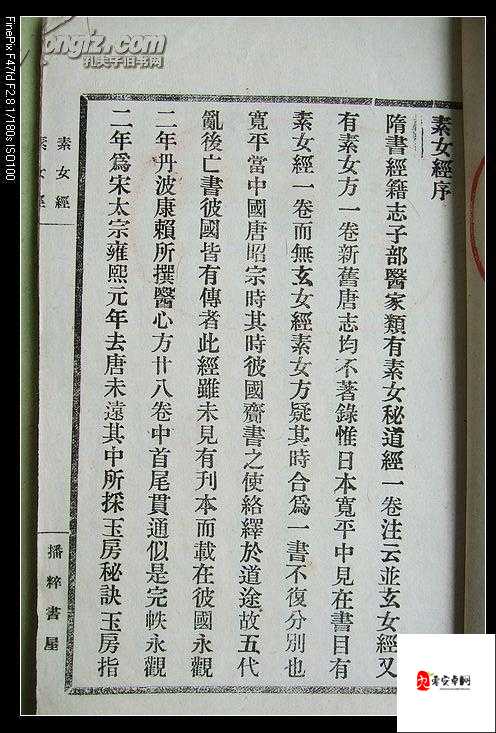 素女經序
隋書經籍志子部醫家類有素女秘道經一卷注云並玄女經又
有素女方一卷新舊唐志均不著錄惟日本寬平中見在書目有
素女經一卷而無玄女經素女方疑其時合爲一書不復分別也
寬平當中國唐昭宗時其時彼國齎書之使絡繹於道途故五代
亂後亡書彼國皆有傳者此經雖未見有刊本而載在彼國永觀
二年丹波康賴所撰醫心方廿八卷中首尾貫通似是完帙永觀
二年爲宋太宗雍熙元年去唐未遠其中所採玉房秘訣玉房指
素女經
素女經
播粹書屋
FinePix F47fd F2.8 1/180s ISO100
孔夫子旧书网